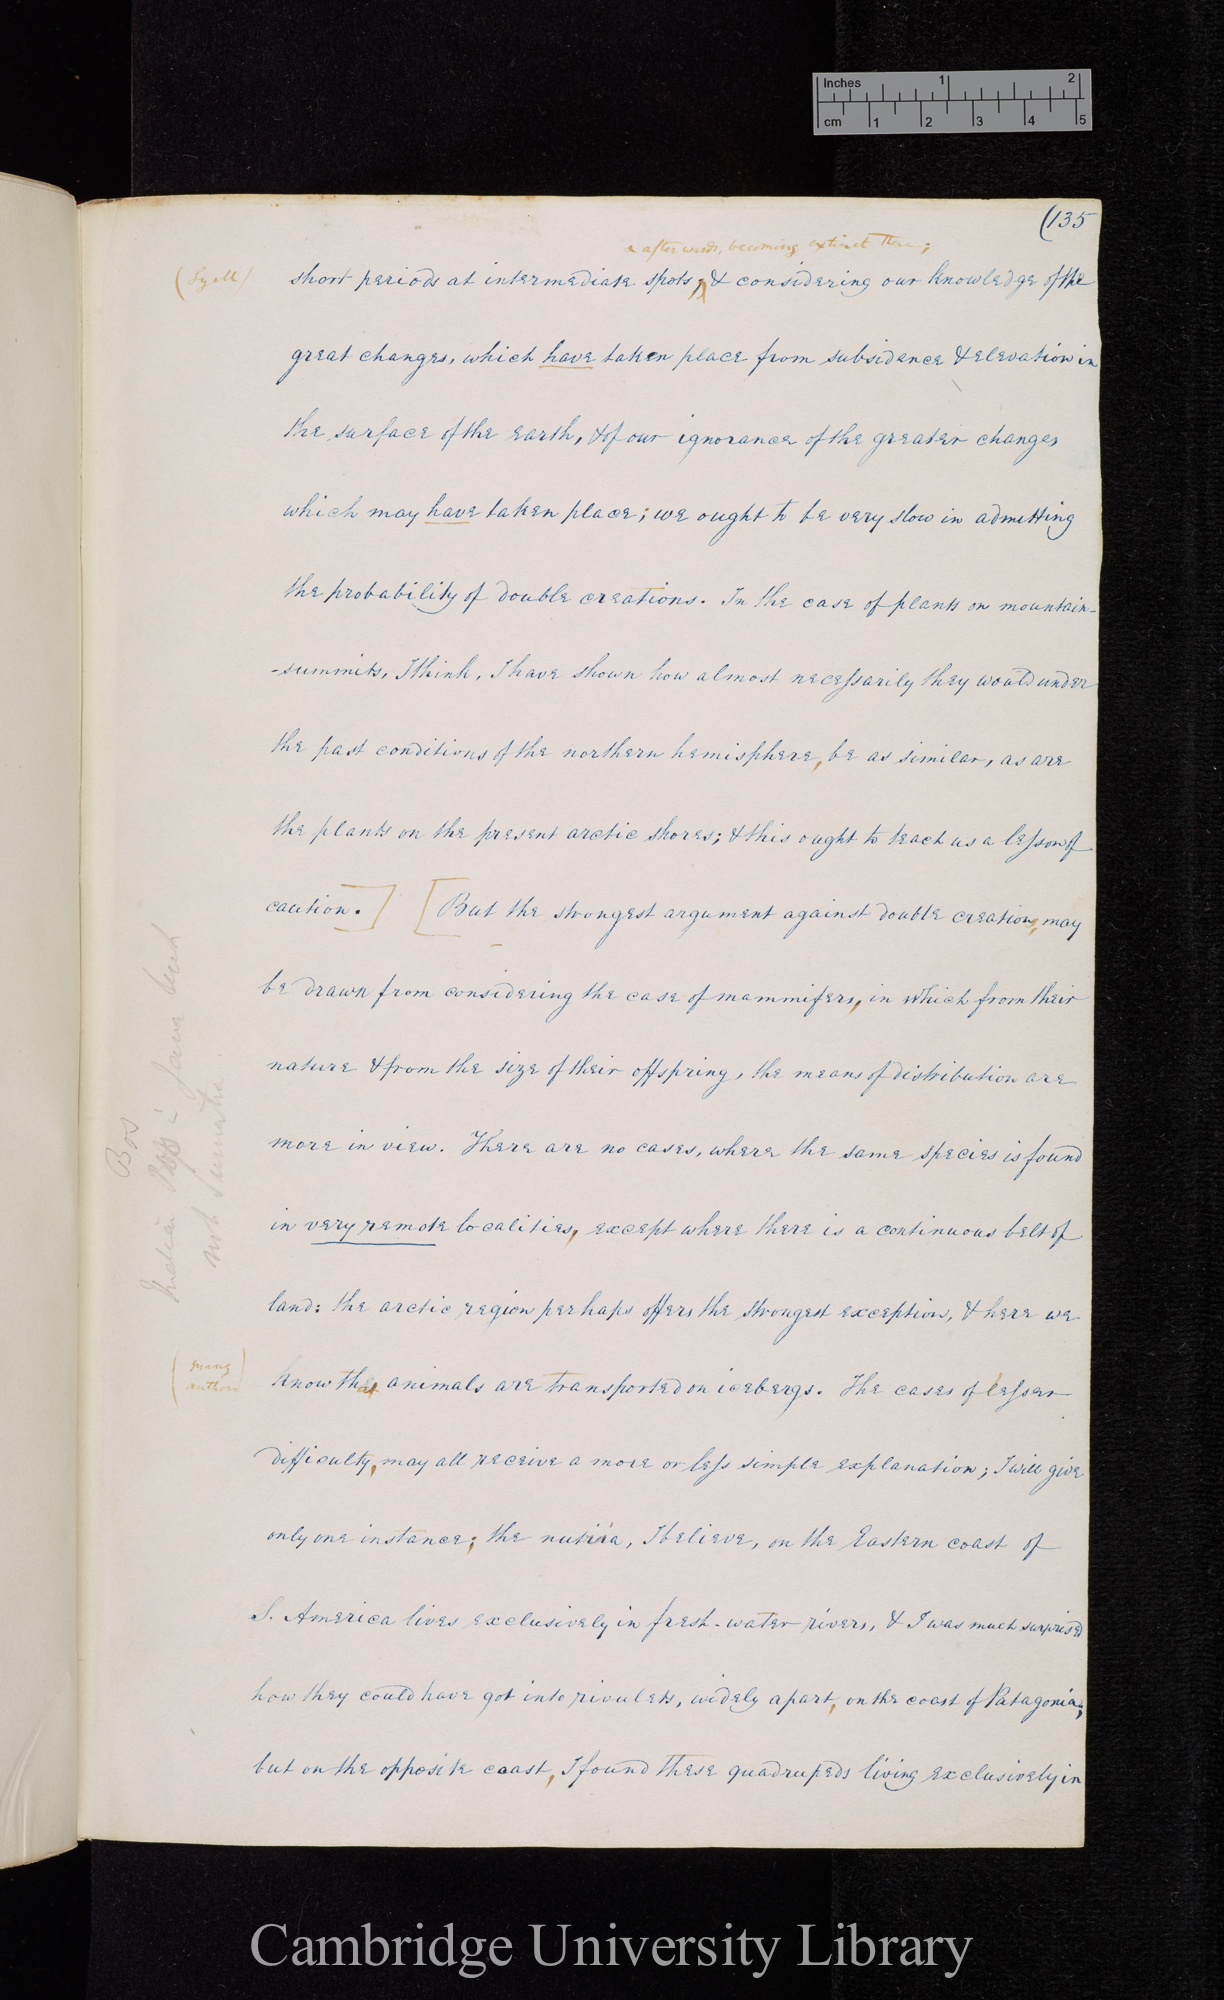 Inches 1 2
cm 1 2 3 4 5
(135
& afterwards, becoming extinct there;
(Lyell)
short periods at intermediate spots; & considering our knowledge of the
great changes, which have taken place from subsidence & elevation in
the surface of the earth, & of our ignorance of the greater changes
which may have taken place; we ought to be very slow in admitting
the probability of double creations. In the case of plants on mountain-
-summits, I think, I have shown how almost necessarily they would under
the past conditions of the northern hemisphere, be as similar, as are
the plants on the present arctic shores; & this ought to teach us a lesson of
caution.] [But the strongest argument against double creations, may
be drawn from considering the case of mammifers, in which from their
nature & from the size of their offspring, the means of distribution are
more in view. There are no cases, where the same species is found
in very remote localities, except where there is a continuous belt of
land: the arctic region perhaps offers the strongest exception, & here we
(many
authors)
know that animals are transported on icebergs. The cases of lesser
difficulty, may all receive a more or less simple explanation; I will give
only one instance; the nutria, I believe, on the Eastern coast of
S. America lives exclusively in fresh-water rivers, & I was much surprised
how they could have got into rivulets, widely apart, on the coast of Patagonia;
but on the opposite coast, I found these quadrupeds living exclusively in
Bos
not Sumatra
Cambridge University Library